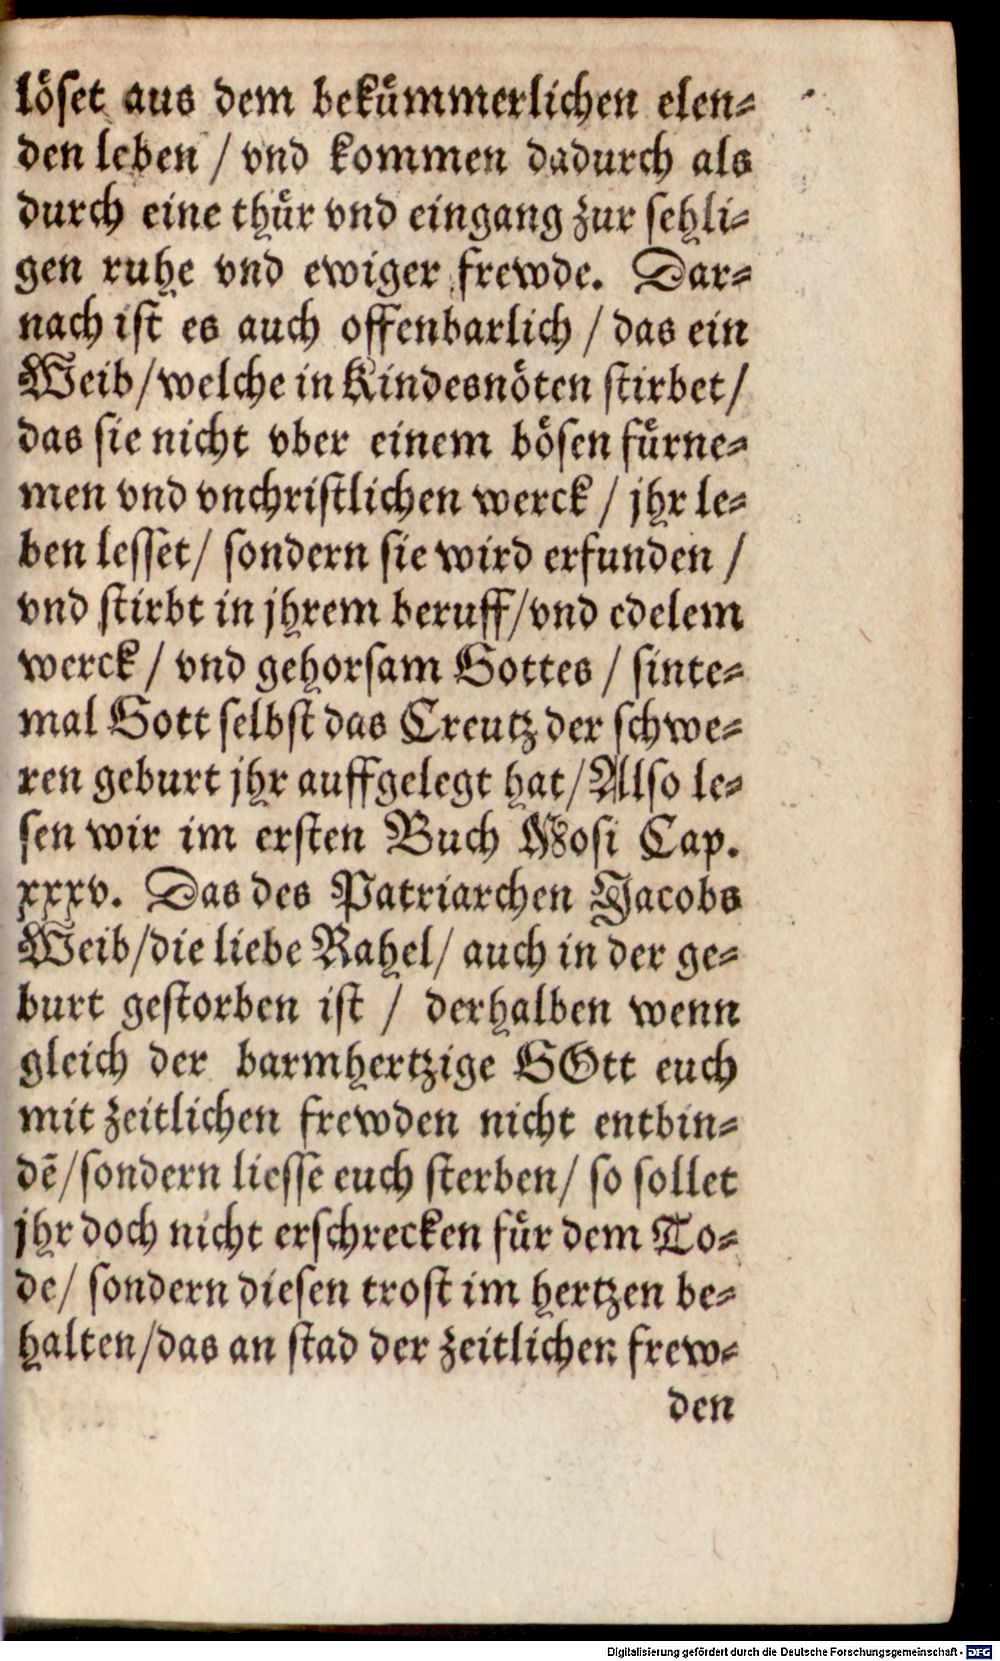 löset aus dem bekümmerlichen elen⸗
den leben / vnd kommen dadurch als
durch eine thür vnd eingang zur sehli⸗
gen ruhe vnd ewiger frewde. Dar⸗
nach ist es auch offenbarlich / das ein
Weib / welche in Kindesnöten stirbet /
das sie nicht vber einem bösen fürne⸗
men vnd vnchristlichen werck / jhr le⸗
ben lesset / sondern sie wird erfunden /
vnd stirbt in jhrem beruff / vnd edelem
werck / vnd gehorsam Gottes / sinte⸗
mal Gott selbst das Creutz der schwe⸗
ren geburt jhr auffgelegt hat / Also le⸗
sen wir im ersten Buch Mosi Cap.
xxxv. Das des Patriarchen Jacobs
Weib / die liebe Rahel / auch in der ge⸗
burt gestorben ist / derhalben wenn
gleich der barmhertzige GOtt euch
mit zeitlichen frewden nicht entbin⸗
dẽ / sondern liesse euch sterben / so sollet
jhr doch nicht erschrecken für dem To⸗
de / sondern diesen trost im hertzen be⸗
halten / das an stad der zeitlichen frew⸗
den
Digitalisierung gefördert durch die Deutsche Forschungsgemeinschaft - DFG